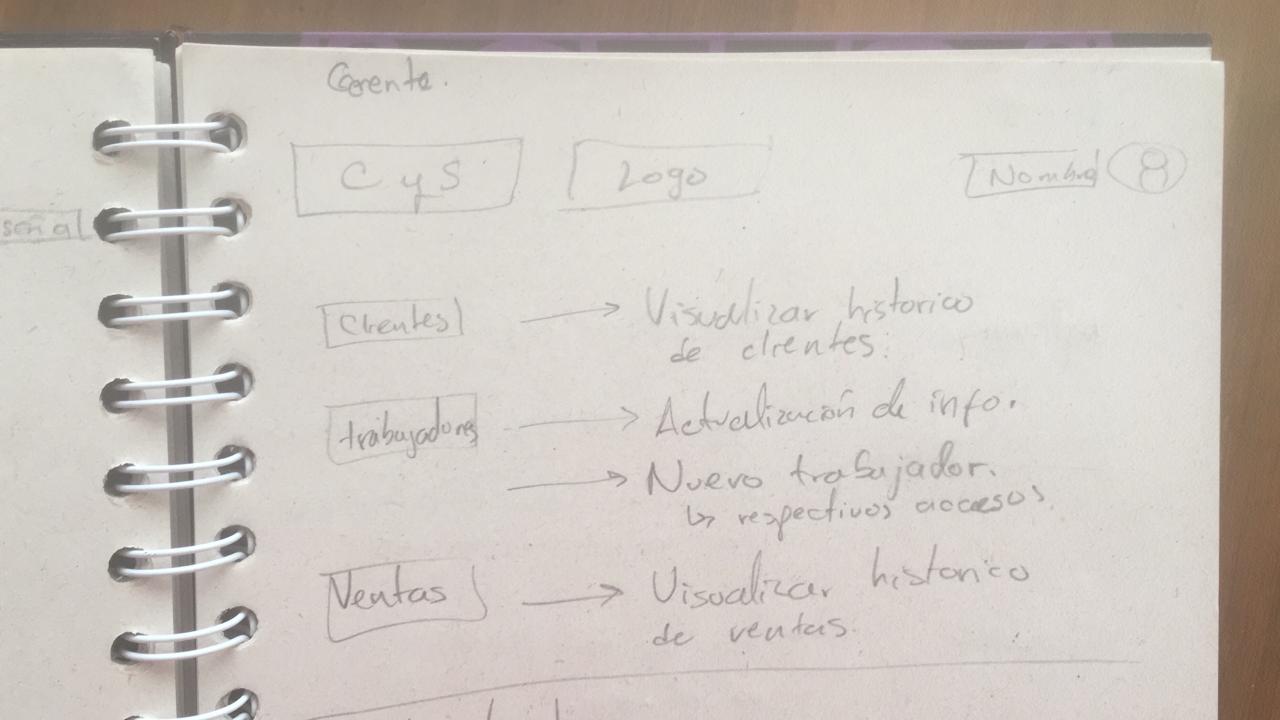 Gerente.
C y S
Logo
Nombre
señal
Clientes → Visualizar historico
de clientes.
trabajadores → Actualización de info.
→ Nuevo trabajador.
↳ respectivos accesos.
Ventas → Visualizar historico
de ventas.